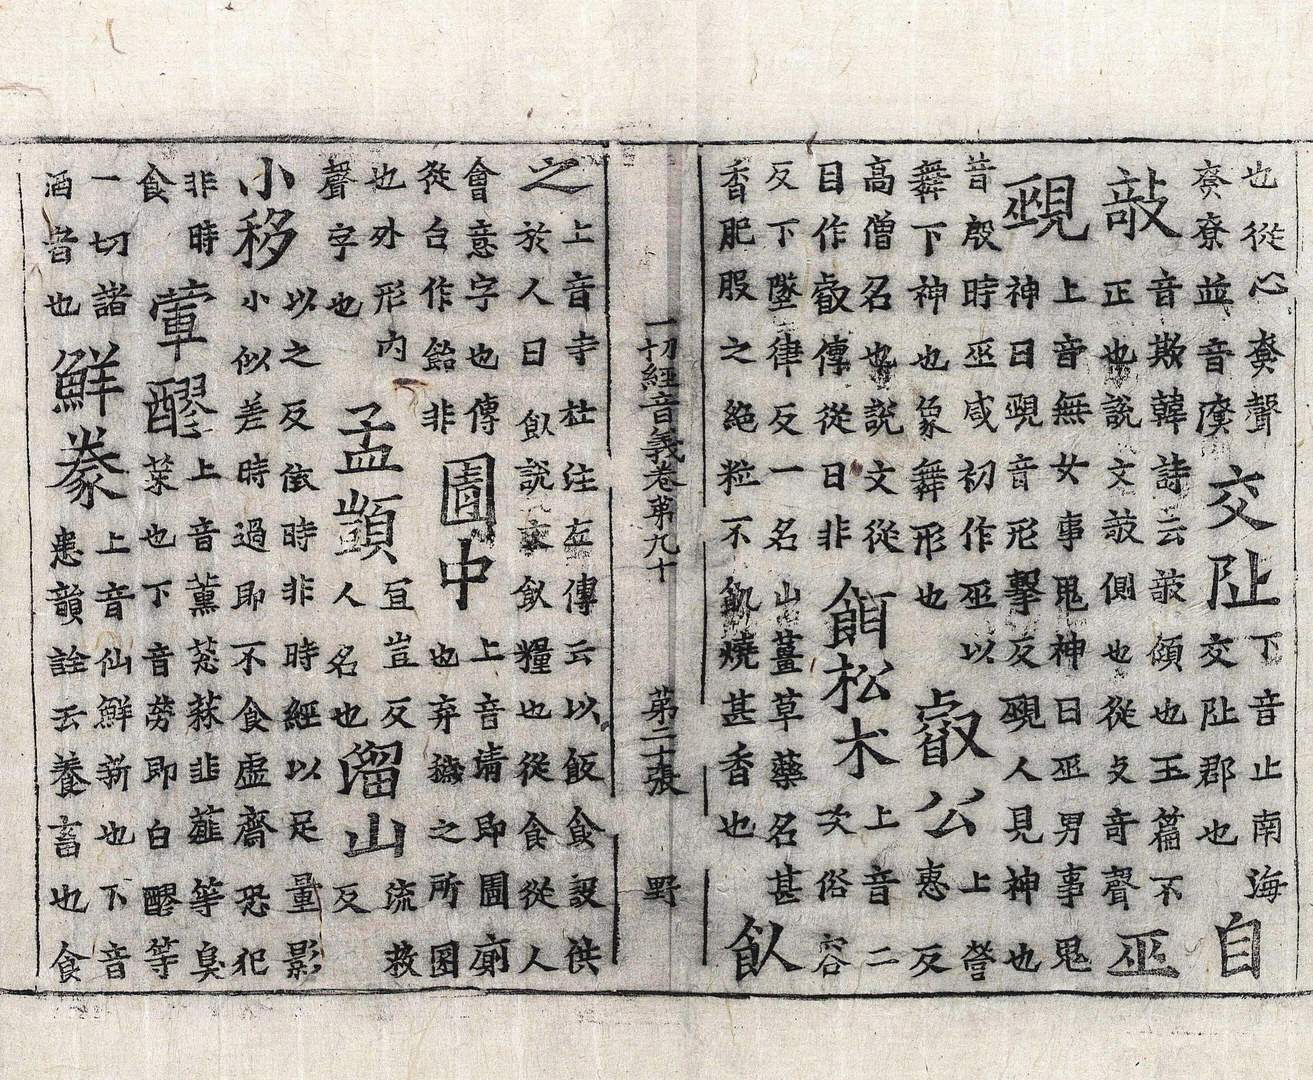 也從心聲
並音
交阯
下音止南海
交阯郡也
自
敧
音欺韓詩云敧傾也玉篇不
正也說文敧側也從攴奇聲
巫
覡
上音無女事鬼神曰巫男事鬼
神曰覡音形擊反覡人見神也
昔殷時巫咸初作巫以
舞下神也象舞形也
叡公
上營
惠反
高僧名也說文從
目作叡傳從日非
餌松朮
上音二
次俗容
反下墜律反一名山薑草藥名甚
香肥服之絕粒不飢燒甚香也
飤
一切經音義卷第九十 第二十張 野
之
上音寺杜注左傳云以飯食設供
於人曰飤說文飤糧也從食從人
會意字也傳
從台作飴非
圊中
上音清即圊廁
也弃穢之所圂
也外形內
聲字也
孟顗
冝豈反
人名也
溜山
流救
反
小移
以之反依時非時經以足量影
小似差時過即不食虛齋恐犯
非時
食
葷醪
上音薰葱蒜韭薤等臭
菜也下音勞即白醪等
一切諸
酒者也
鮮豢
上音仙鮮新也下音
患韻詮云養畜也食